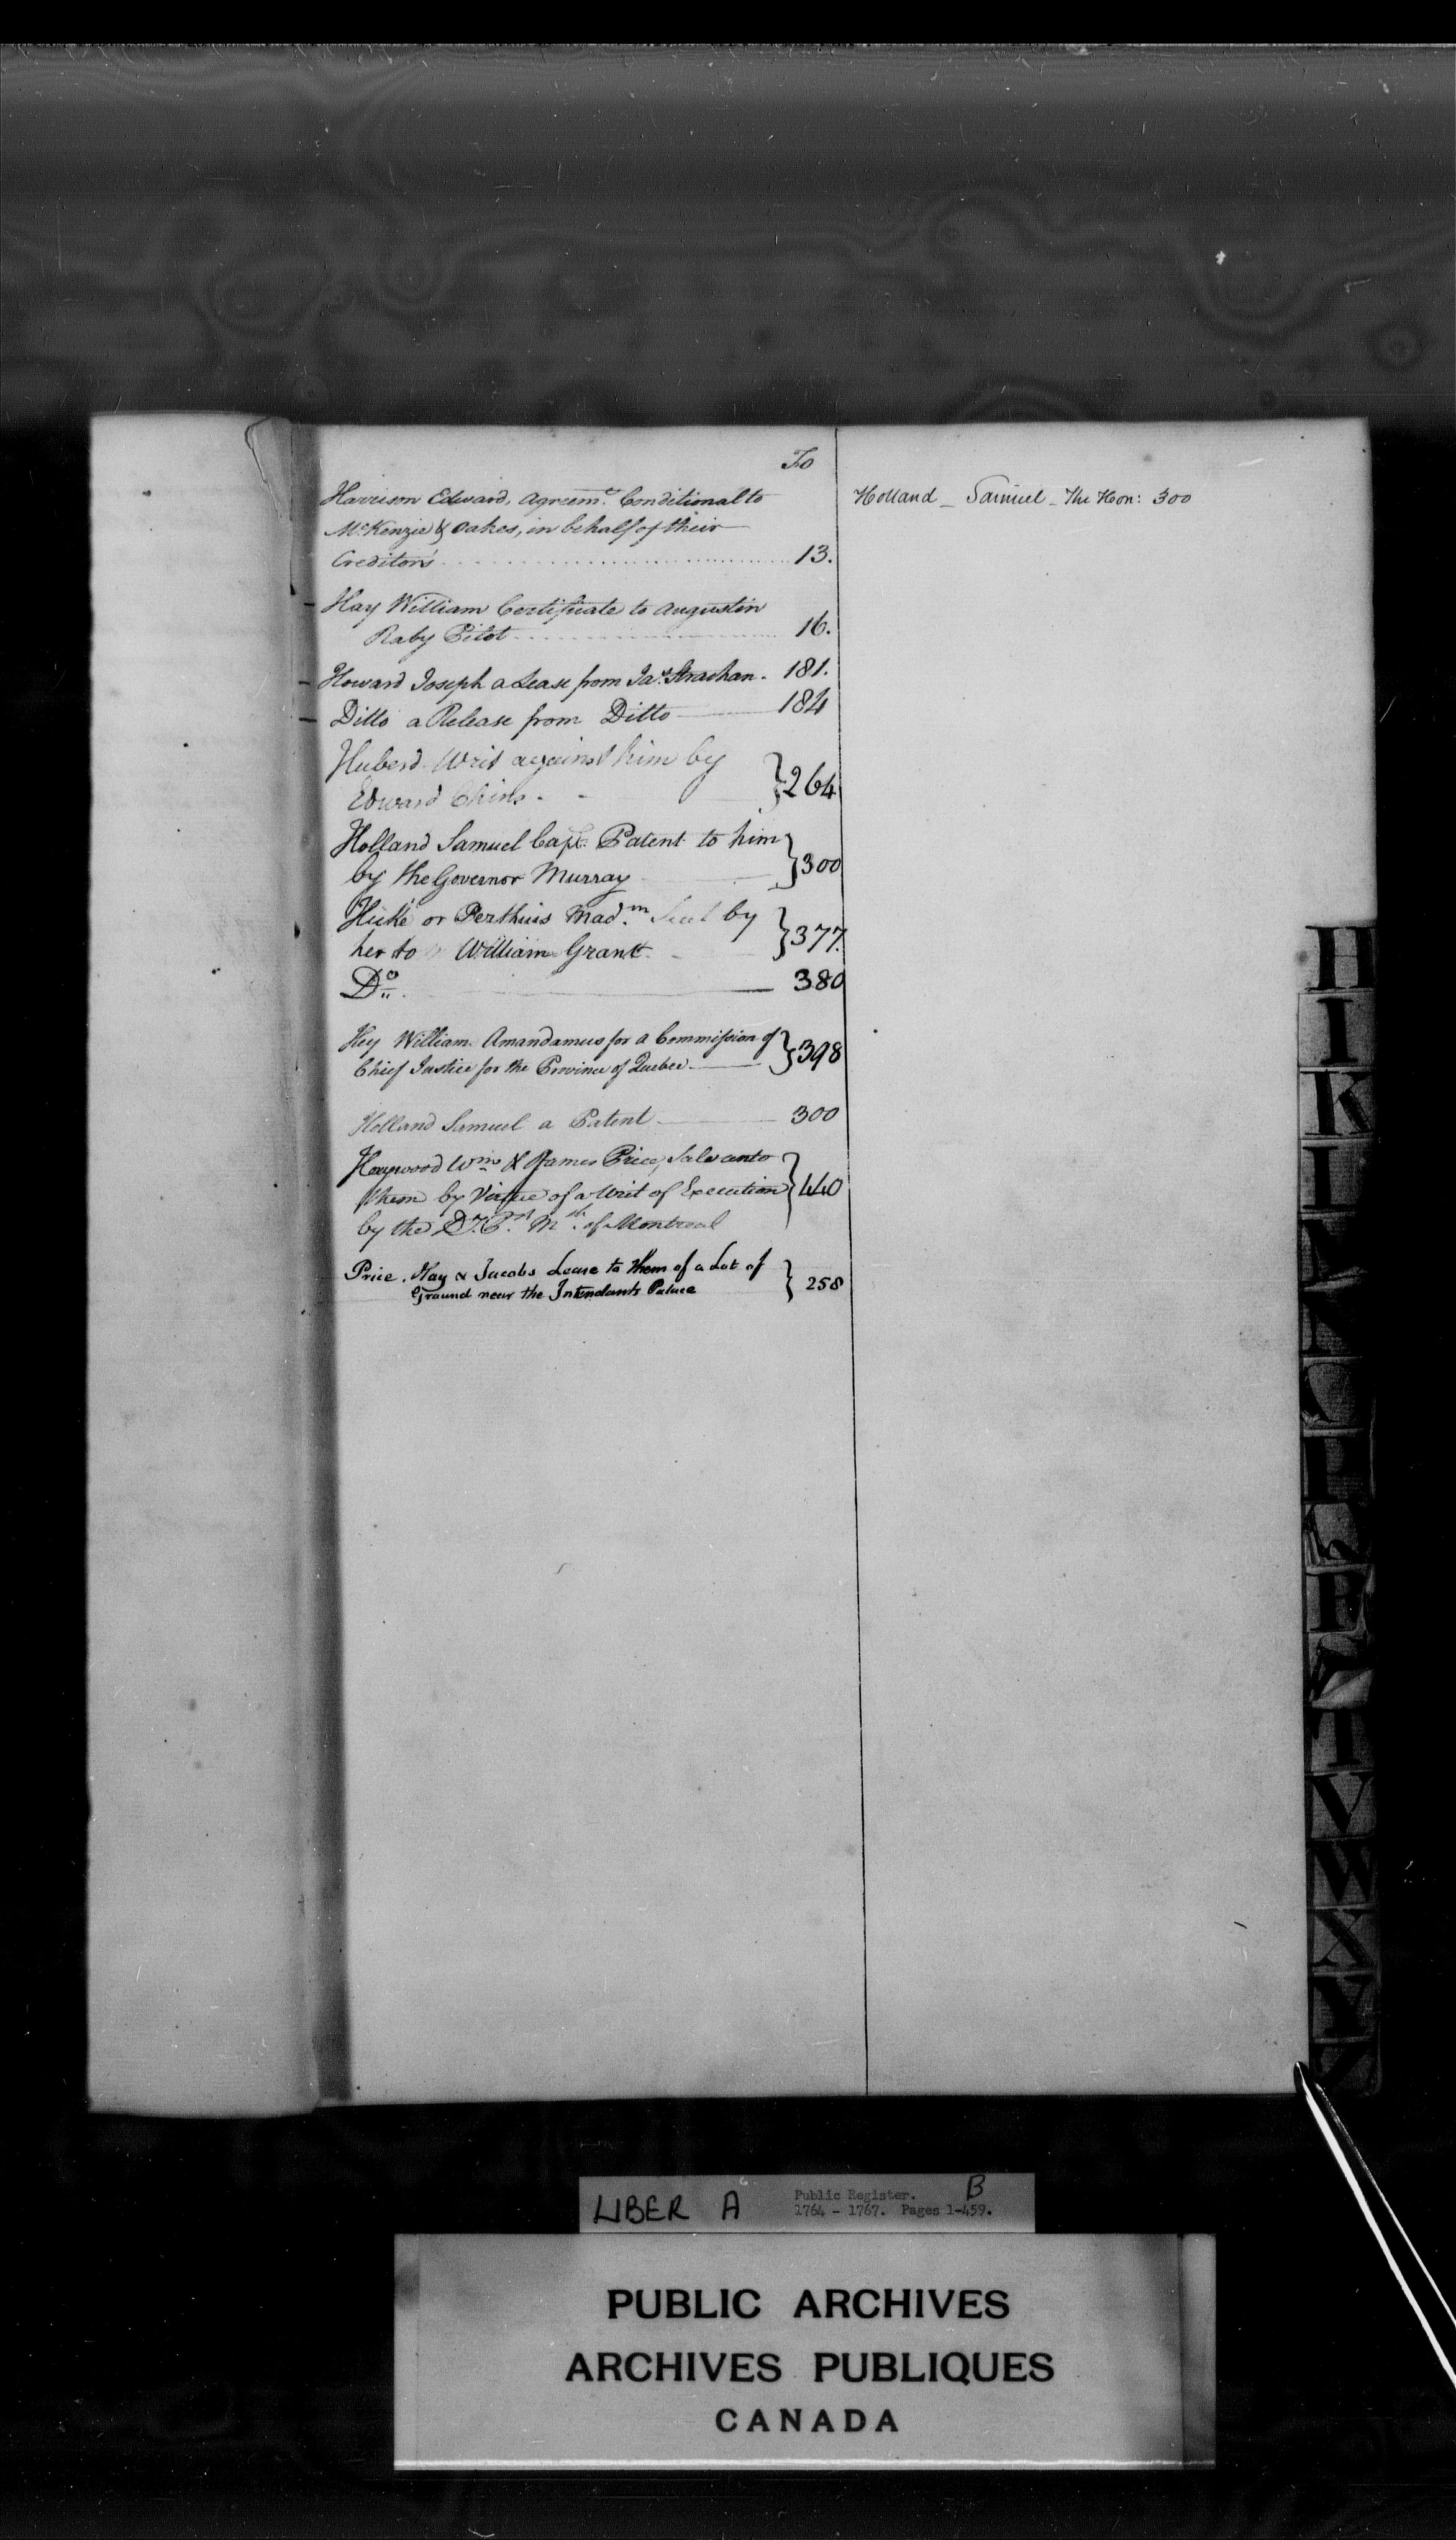 Fo
Harrison Edward, Agreemt. Conditional to
McKenzie & Oakes, in behalf of their
Creditors 13.
Hay William Certificate to Augustin
Raby Pilot 16.
Howard Joseph a Lease from Jas. Strachan. 181.
Ditto a Release from Ditto 184
Huberd Writ against him by
Edward Chins } 264
Holland Samuel Capt. Patent to him
by the Governor Murray } 300
Hiché or Perthuis Madm. by
her to William Grant } 377.
Do. 380
Hey William Amandamus for a Commission of
Chief Justice for the Province of Quebec } 398
Holland Samuel a Patent 300
Haywood Wm. & James Price, Sale unto
them by Virtue of a Writ of Execution } 440
by the of Montreal
Price, Hay & Jacobs Lease to them of a Lot of
Ground near the Intendants Palace } 258
Holland _ Samuel _ The Hon: 300
H
I
K
L
P
T
V
W
X
Y
Z
LIBER A Public Register. B
1764 - 1767. Pages 1-459.
PUBLIC ARCHIVES
ARCHIVES PUBLIQUES
CANADA